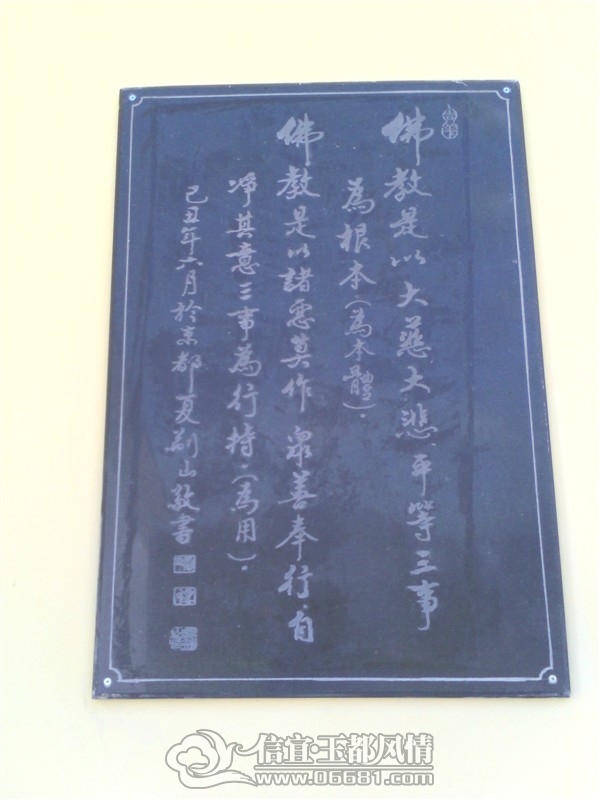 佛教是以大慈大悲平等三事
為根本(為本體)。
佛教是以諸惡莫作眾善奉行自
淨其意三事為行持。(為用)。
己丑年六月於京都夏荊山敬書
信宜·玉都风情
www.06681.com